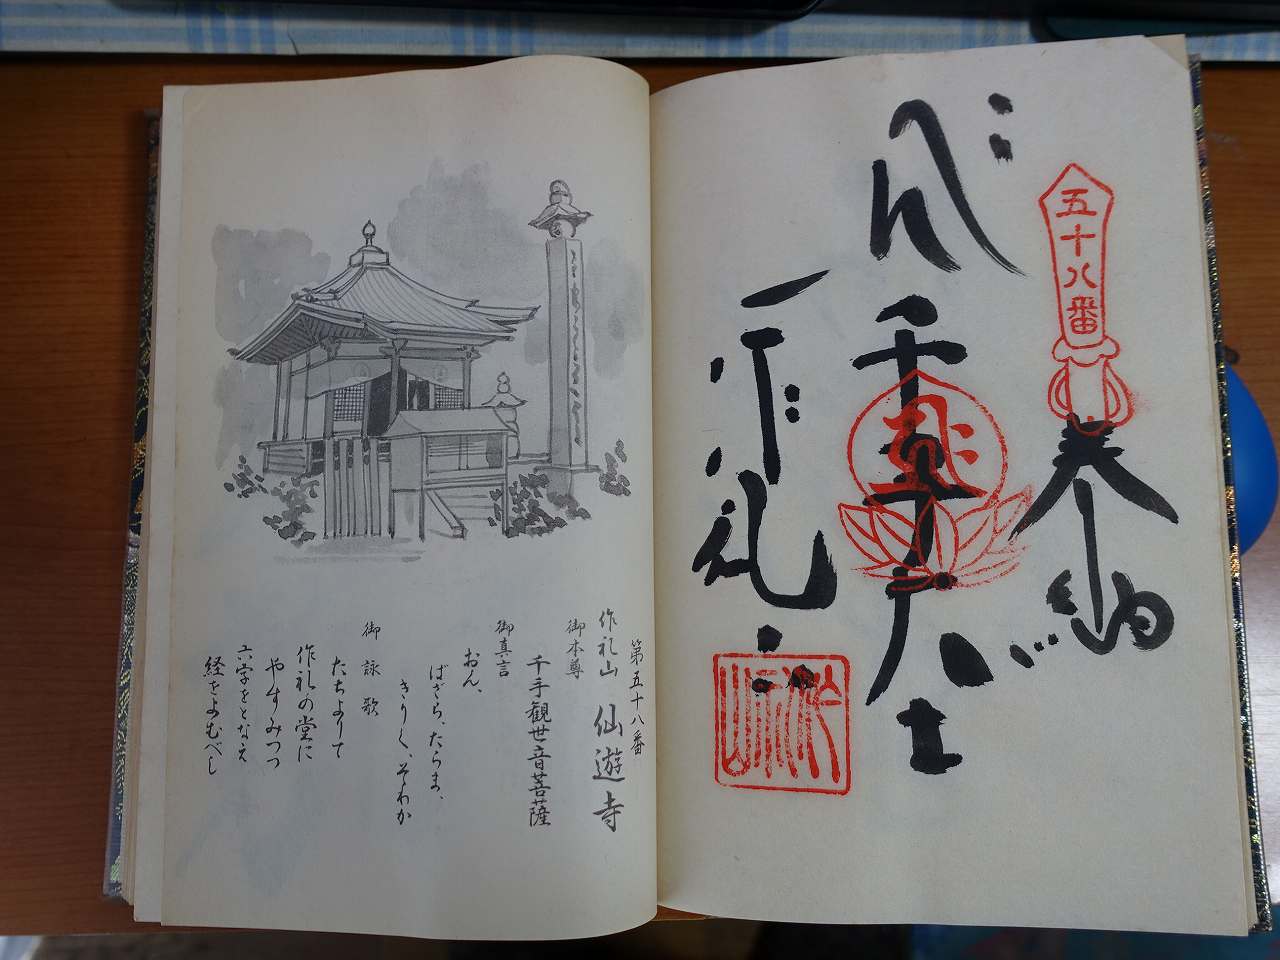 五十八番
奉納
千手大士
作礼山
第五十八番
作礼山 仙遊寺
御本尊
千手観世音菩薩
御真言
おん、
ばざら、たらま、
きりく、そわか
御詠歌
たちよりて
作礼の堂に
やすみつつ
六字をとなえ
経をよむべし